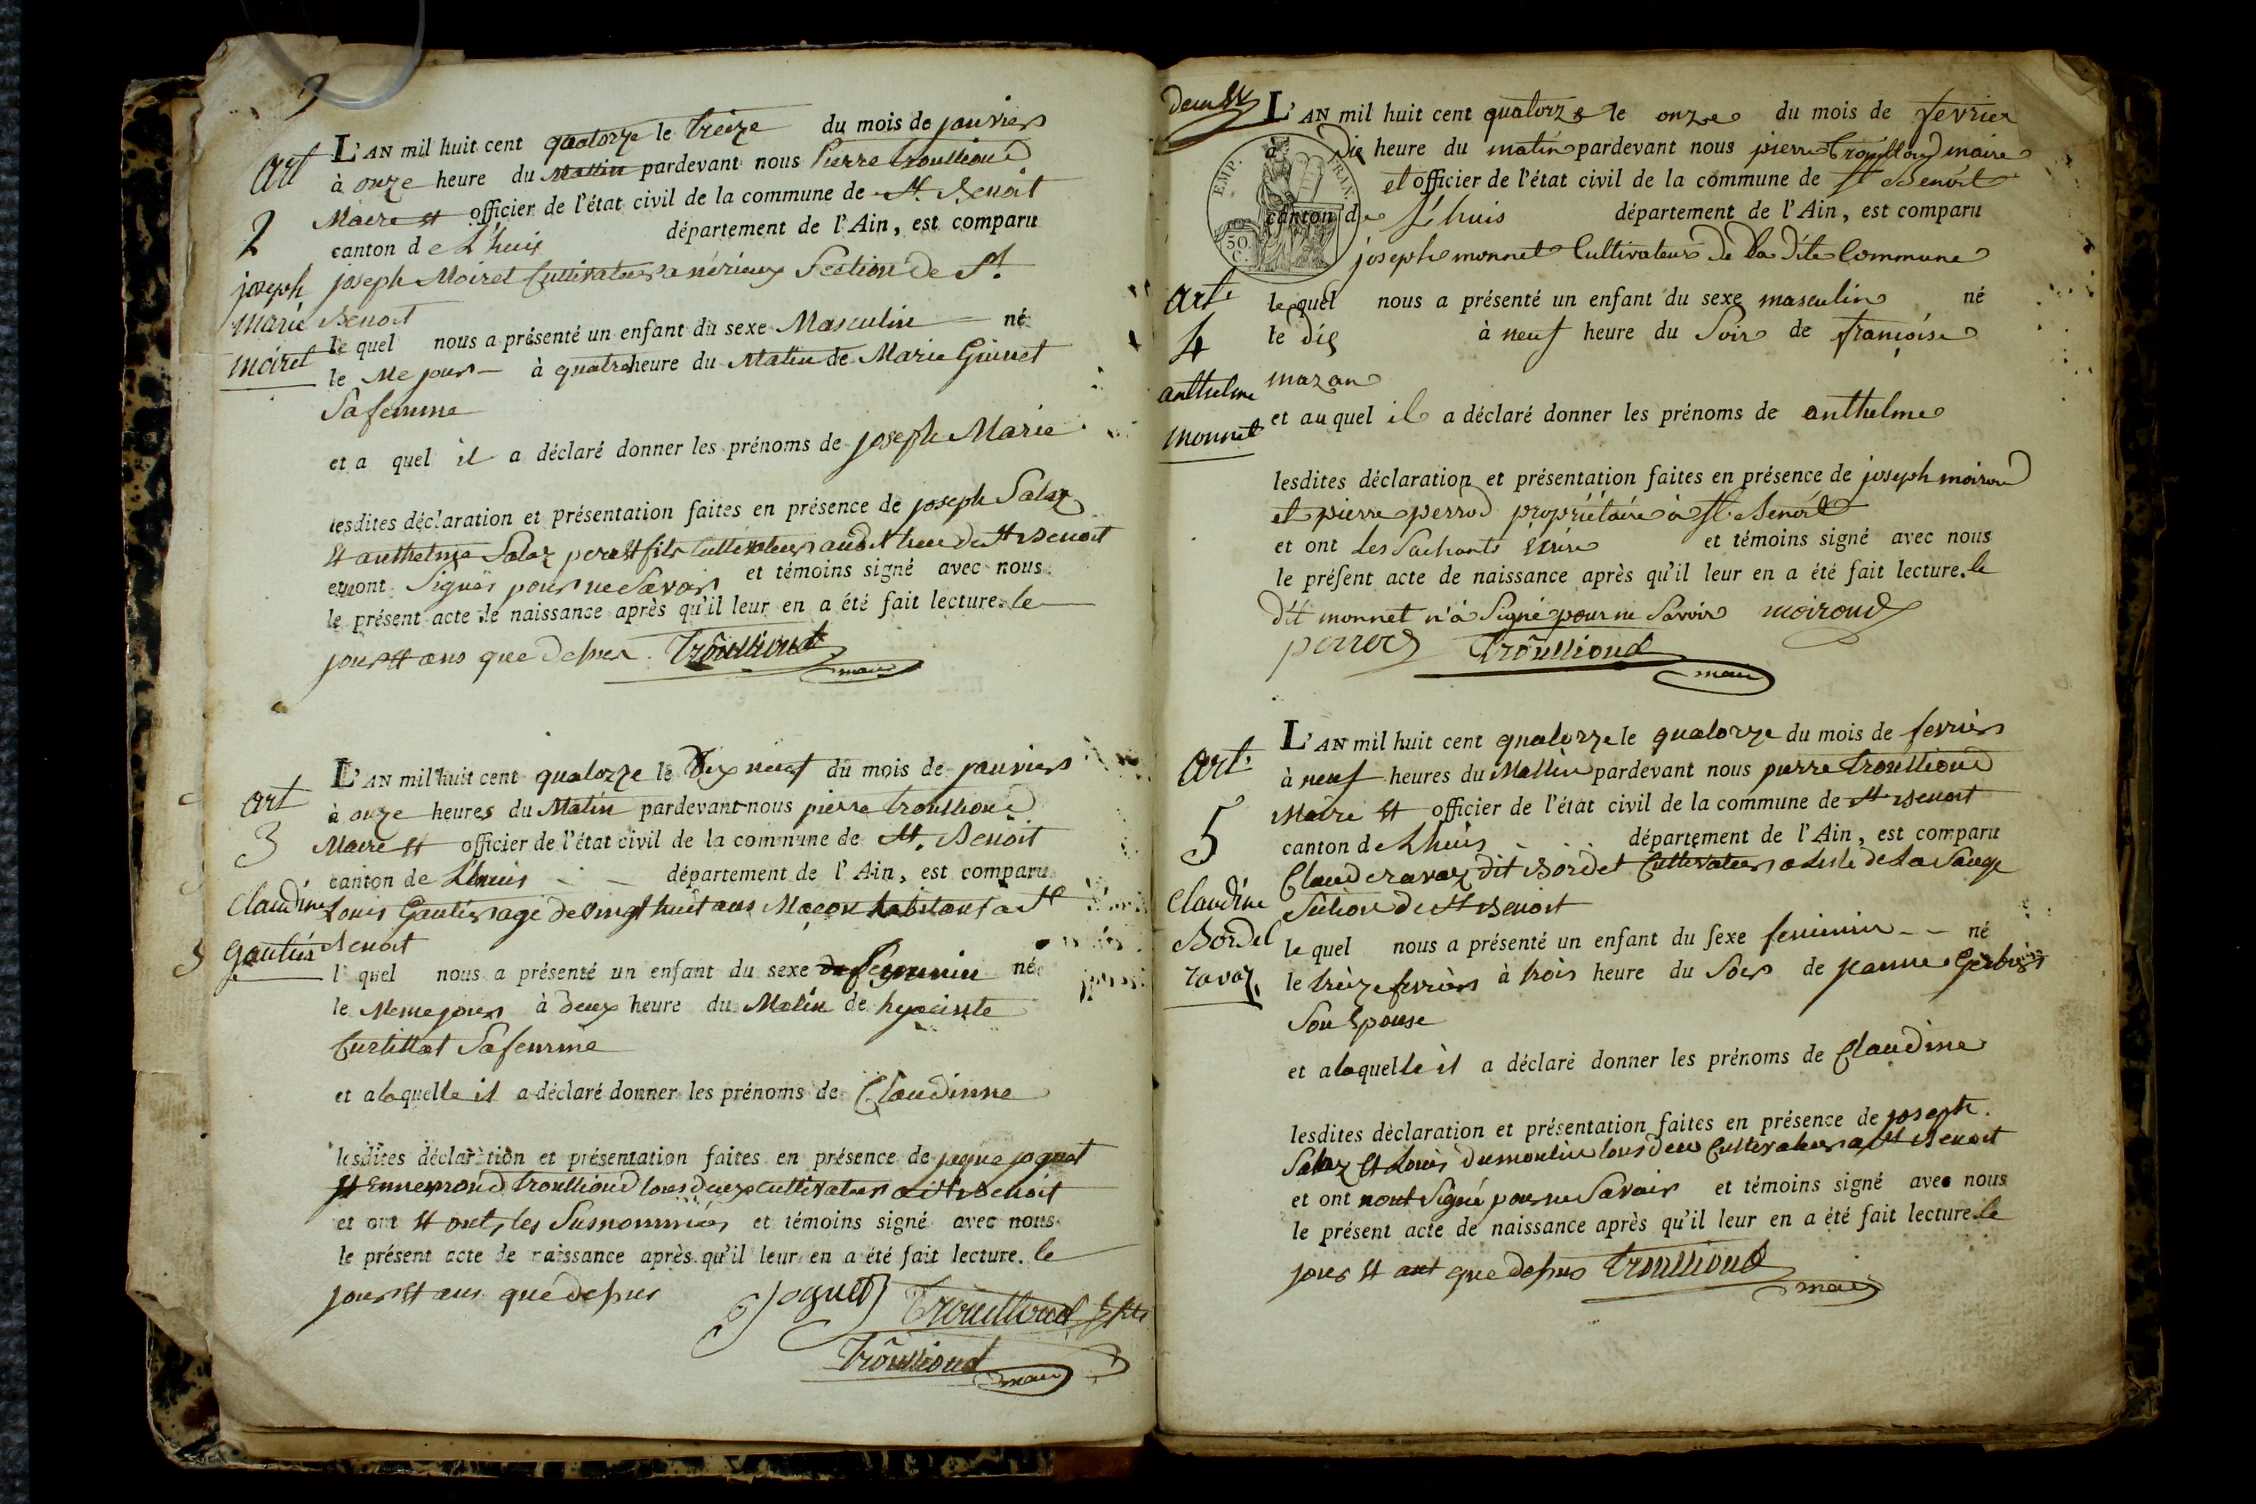 art
2
joseph
marie
moiret
L'AN mil huit cent quatorze le treize du mois de janviers
à onze heure du Mattin pardevant nous Pierre troulliond
Maire et officier de l'état civil de la commune de St. Benoit
canton de L'huis département de l'Ain, est comparu
joseph Moiret Cultivateur a nérieux Section de St.
Benoit
le quel nous a présenté un enfant du sexe Masculin né
le Me jour à quatre heure du Matin de Marie Guinet
Sa femme
et a quel il a déclaré donner les prénoms de joseph Marie
lesdites déclaration et présentation faites en présence de joseph Salaz
et anthelme Salaz pere et fils Cultivateurs audit lieu de St Benoit
et nont Signés pour ne Savoir et témoins signé avec nous
le présent acte de naissance après qu'il leur en a été fait lecture. le
jour et ans que dessus Troulliond
maire
art
3
Claudine
gautier
L'AN mil huit cent quatorze le Dix neuf du mois de janviers
à onze heures du Matin pardevant nous pierre troulliond
Maire et officier de l'état civil de la commune de St. Benoit
canton de Lhuis département de l'Ain, est comparu
Louis Gautier agé de vingt huit ans Maçon habitant a St
Benoit
l quel nous a présenté un enfant du sexe de feminin né
le Meme jours à deux heure du Matin de hyacinte
Curtillat Sa femme
et a laquelle il a déclaré donner les prénoms de Claudinne
lesdites déclaration et présentation faites en présence de joguet
et Ennemond troulliond tous deux cultivateur a St Benoit
et ont et ont, les Susnommées et témoins signé avec nous
le présent acte de naissance après qu'il leur en a été fait lecture. le
jour et ans que dessus
Joguet Trouilloud fils
Troulliond
maire
deux
EMP. PRIN.
50.
C.
L'AN mil huit cent quatorze le onze du mois de fevrier
à Dix heure du matin pardevant nous pierre Trouilloud maire
et officier de l'état civil de la commune de St Benoit
canton de L'huis département de l'Ain, est comparu
joseph monnet Cultivateur de la dite Commune
art.
4
anthelme
monnet
le quel nous a présenté un enfant du sexe masculin né
le dix à neuf heure du Soir de françoise
mazan
et au quel il a déclaré donner les prénoms de anthelme
lesdites déclaration et présentation faites en présence de joseph moiroud
et pierre perrod propriétaire à St Benoit
et ont Les Sachants Ecrire et témoins signé avec nous
le présent acte de naissance après qu'il leur en a été fait lecture. le
dit monnet n'a Signé pour ne Savoir moiroud
perrod Troulliond
maire
art.
5
Claudine
Bordel
ravaz
L'AN mil huit cent quatorze le quatorze du mois de fevriers
à neuf heures du Mattin pardevant nous pierre troulliond
Maire et officier de l'état civil de la commune de St Benoit
canton de Lhuis département de l'Ain, est comparu
Claude ravaz dit Bordet Cultivateur a Lisle de la Sauge
Section de St Benoit
le quel nous a présenté un enfant du sexe feminin né
le treize fevriers à trois heure du Soir de jeanne
Son Epouse
et a laquelle il a déclaré donner les prénoms de Claudine
lesdites déclaration et présentation faites en présence de joseph
Salaz et Louis dumoulin tous deux Cultivateurs a St Benoit
et ont nont Signé pour ne Savoir et témoins signé avec nous
le présent acte de naissance après qu'il leur en a été fait lecture. le
jour et ant que dessus Troulliond
maire